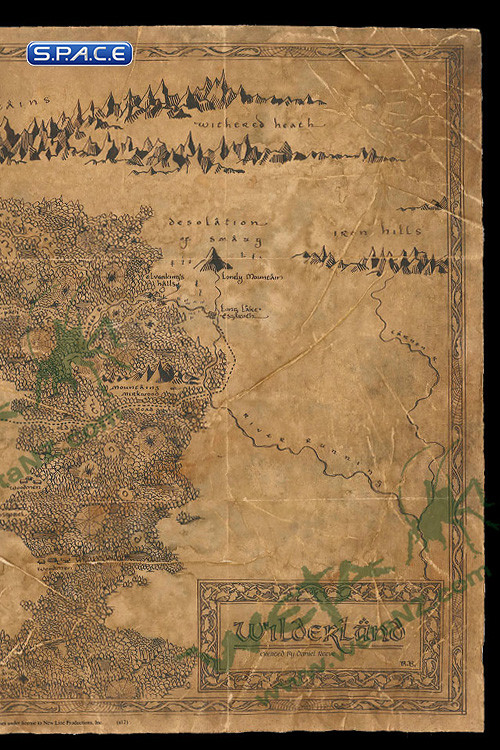 S.P.A.C.E
withered heath
desolation
of smaug
iron hills
Elvenking's
halls
Lonely Mountain
Long Lake
esgaroth
Mountains
Mirkwood
River Running
Wilderland
created by Daniel Reeve
www.WetaNZ.com
under license to New Line Productions, Inc. (s12)